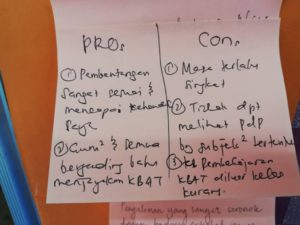 PROs
① Pembentangan
sangat sesuai &
mencapai kehendak
saya
② Guru² & semua
berganding bahu
menjayakan KBAT
Cons
① Masa terlalu
singkat
② Tidak dpt
melihat PdP
bg subjek² tertentu
③ Pembelajaran
KBAT diluar kelas
kurang.
Pengalaman yang sangat seronok